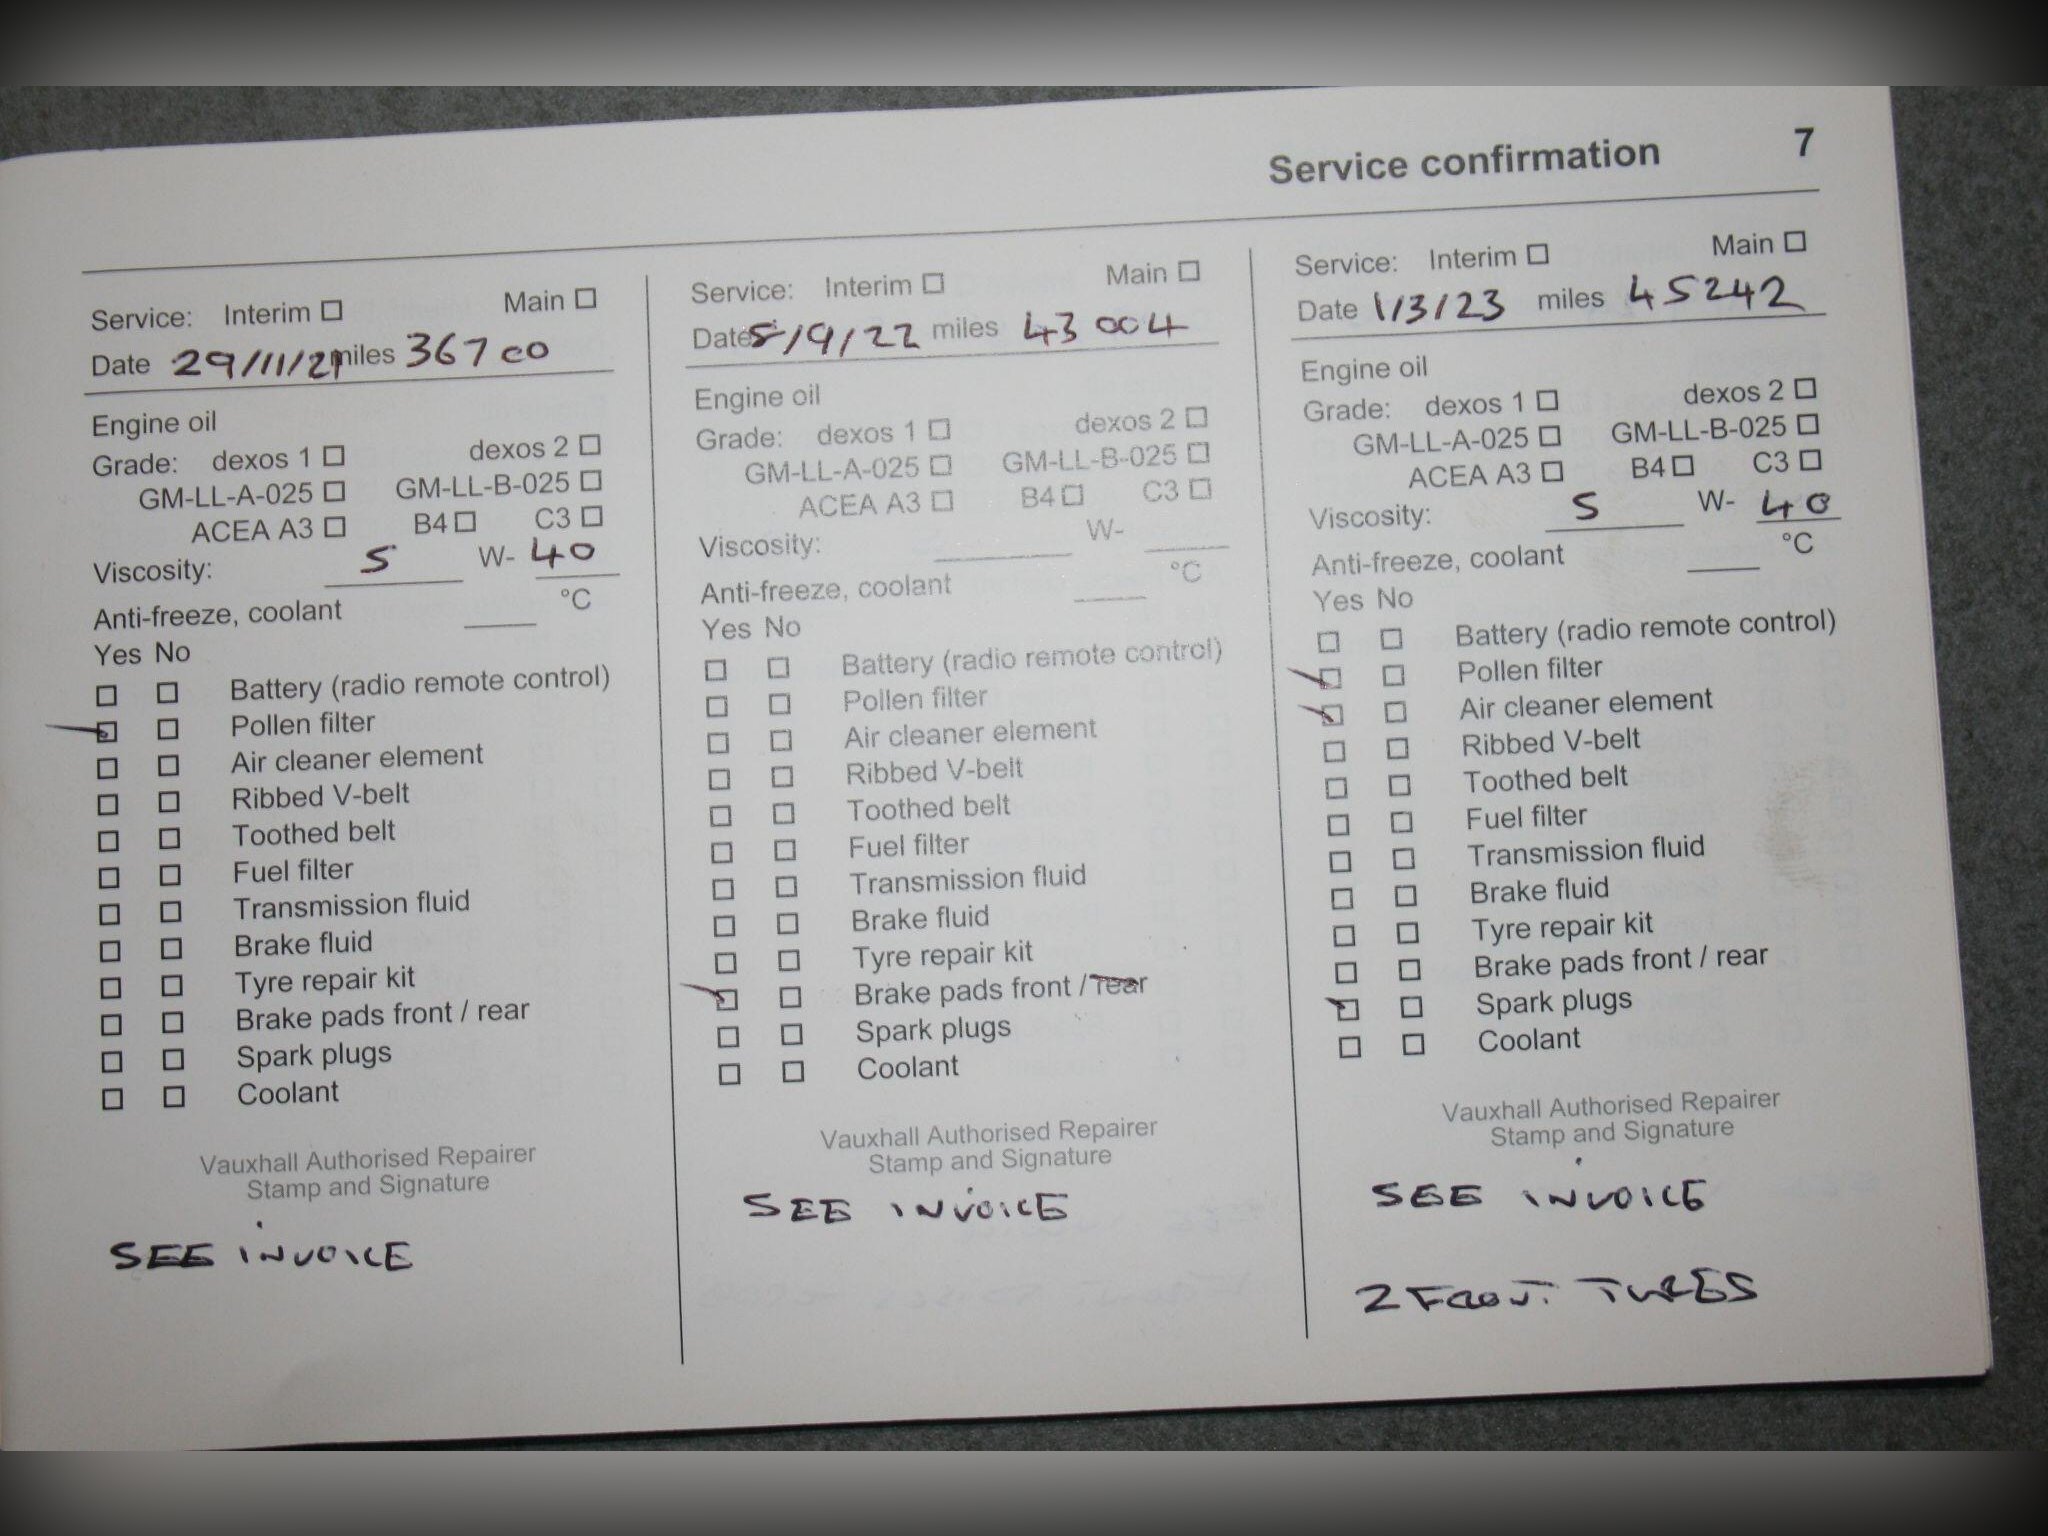 Service confirmation 7
Service: Interim Main
Date 29/11/21 miles 36700
Engine oil
Grade: dexos 1 dexos 2
GM-LL-A-025 GM-LL-B-025
ACEA A3 B4 C3
Viscosity: 5 W- 40
Anti-freeze, coolant °C
Yes No
Battery (radio remote control)
Pollen filter
Air cleaner element
Ribbed V-belt
Toothed belt
Fuel filter
Transmission fluid
Brake fluid
Tyre repair kit
Brake pads front / rear
Spark plugs
Coolant
Vauxhall Authorised Repairer
Stamp and Signature
SEE INVOICE
Service: Interim Main
Date 5/9/22 miles 43004
Engine oil
Grade: dexos 1 dexos 2
GM-LL-A-025 GM-LL-B-025
ACEA A3 B4 C3
Viscosity: W-
Anti-freeze, coolant °C
Yes No
Battery (radio remote control)
Pollen filter
Air cleaner element
Ribbed V-belt
Toothed belt
Fuel filter
Transmission fluid
Brake fluid
Tyre repair kit
Brake pads front / rear
Spark plugs
Coolant
Vauxhall Authorised Repairer
Stamp and Signature
SEE INVOICE
Service: Interim Main
Date 1/3/23 miles 45242
Engine oil
Grade: dexos 1 dexos 2
GM-LL-A-025 GM-LL-B-025
ACEA A3 B4 C3
Viscosity: 5 W- 40
Anti-freeze, coolant °C
Yes No
Battery (radio remote control)
Pollen filter
Air cleaner element
Ribbed V-belt
Toothed belt
Fuel filter
Transmission fluid
Brake fluid
Tyre repair kit
Brake pads front / rear
Spark plugs
Coolant
Vauxhall Authorised Repairer
Stamp and Signature
SEE INVOICE
2 FRONT TYRES